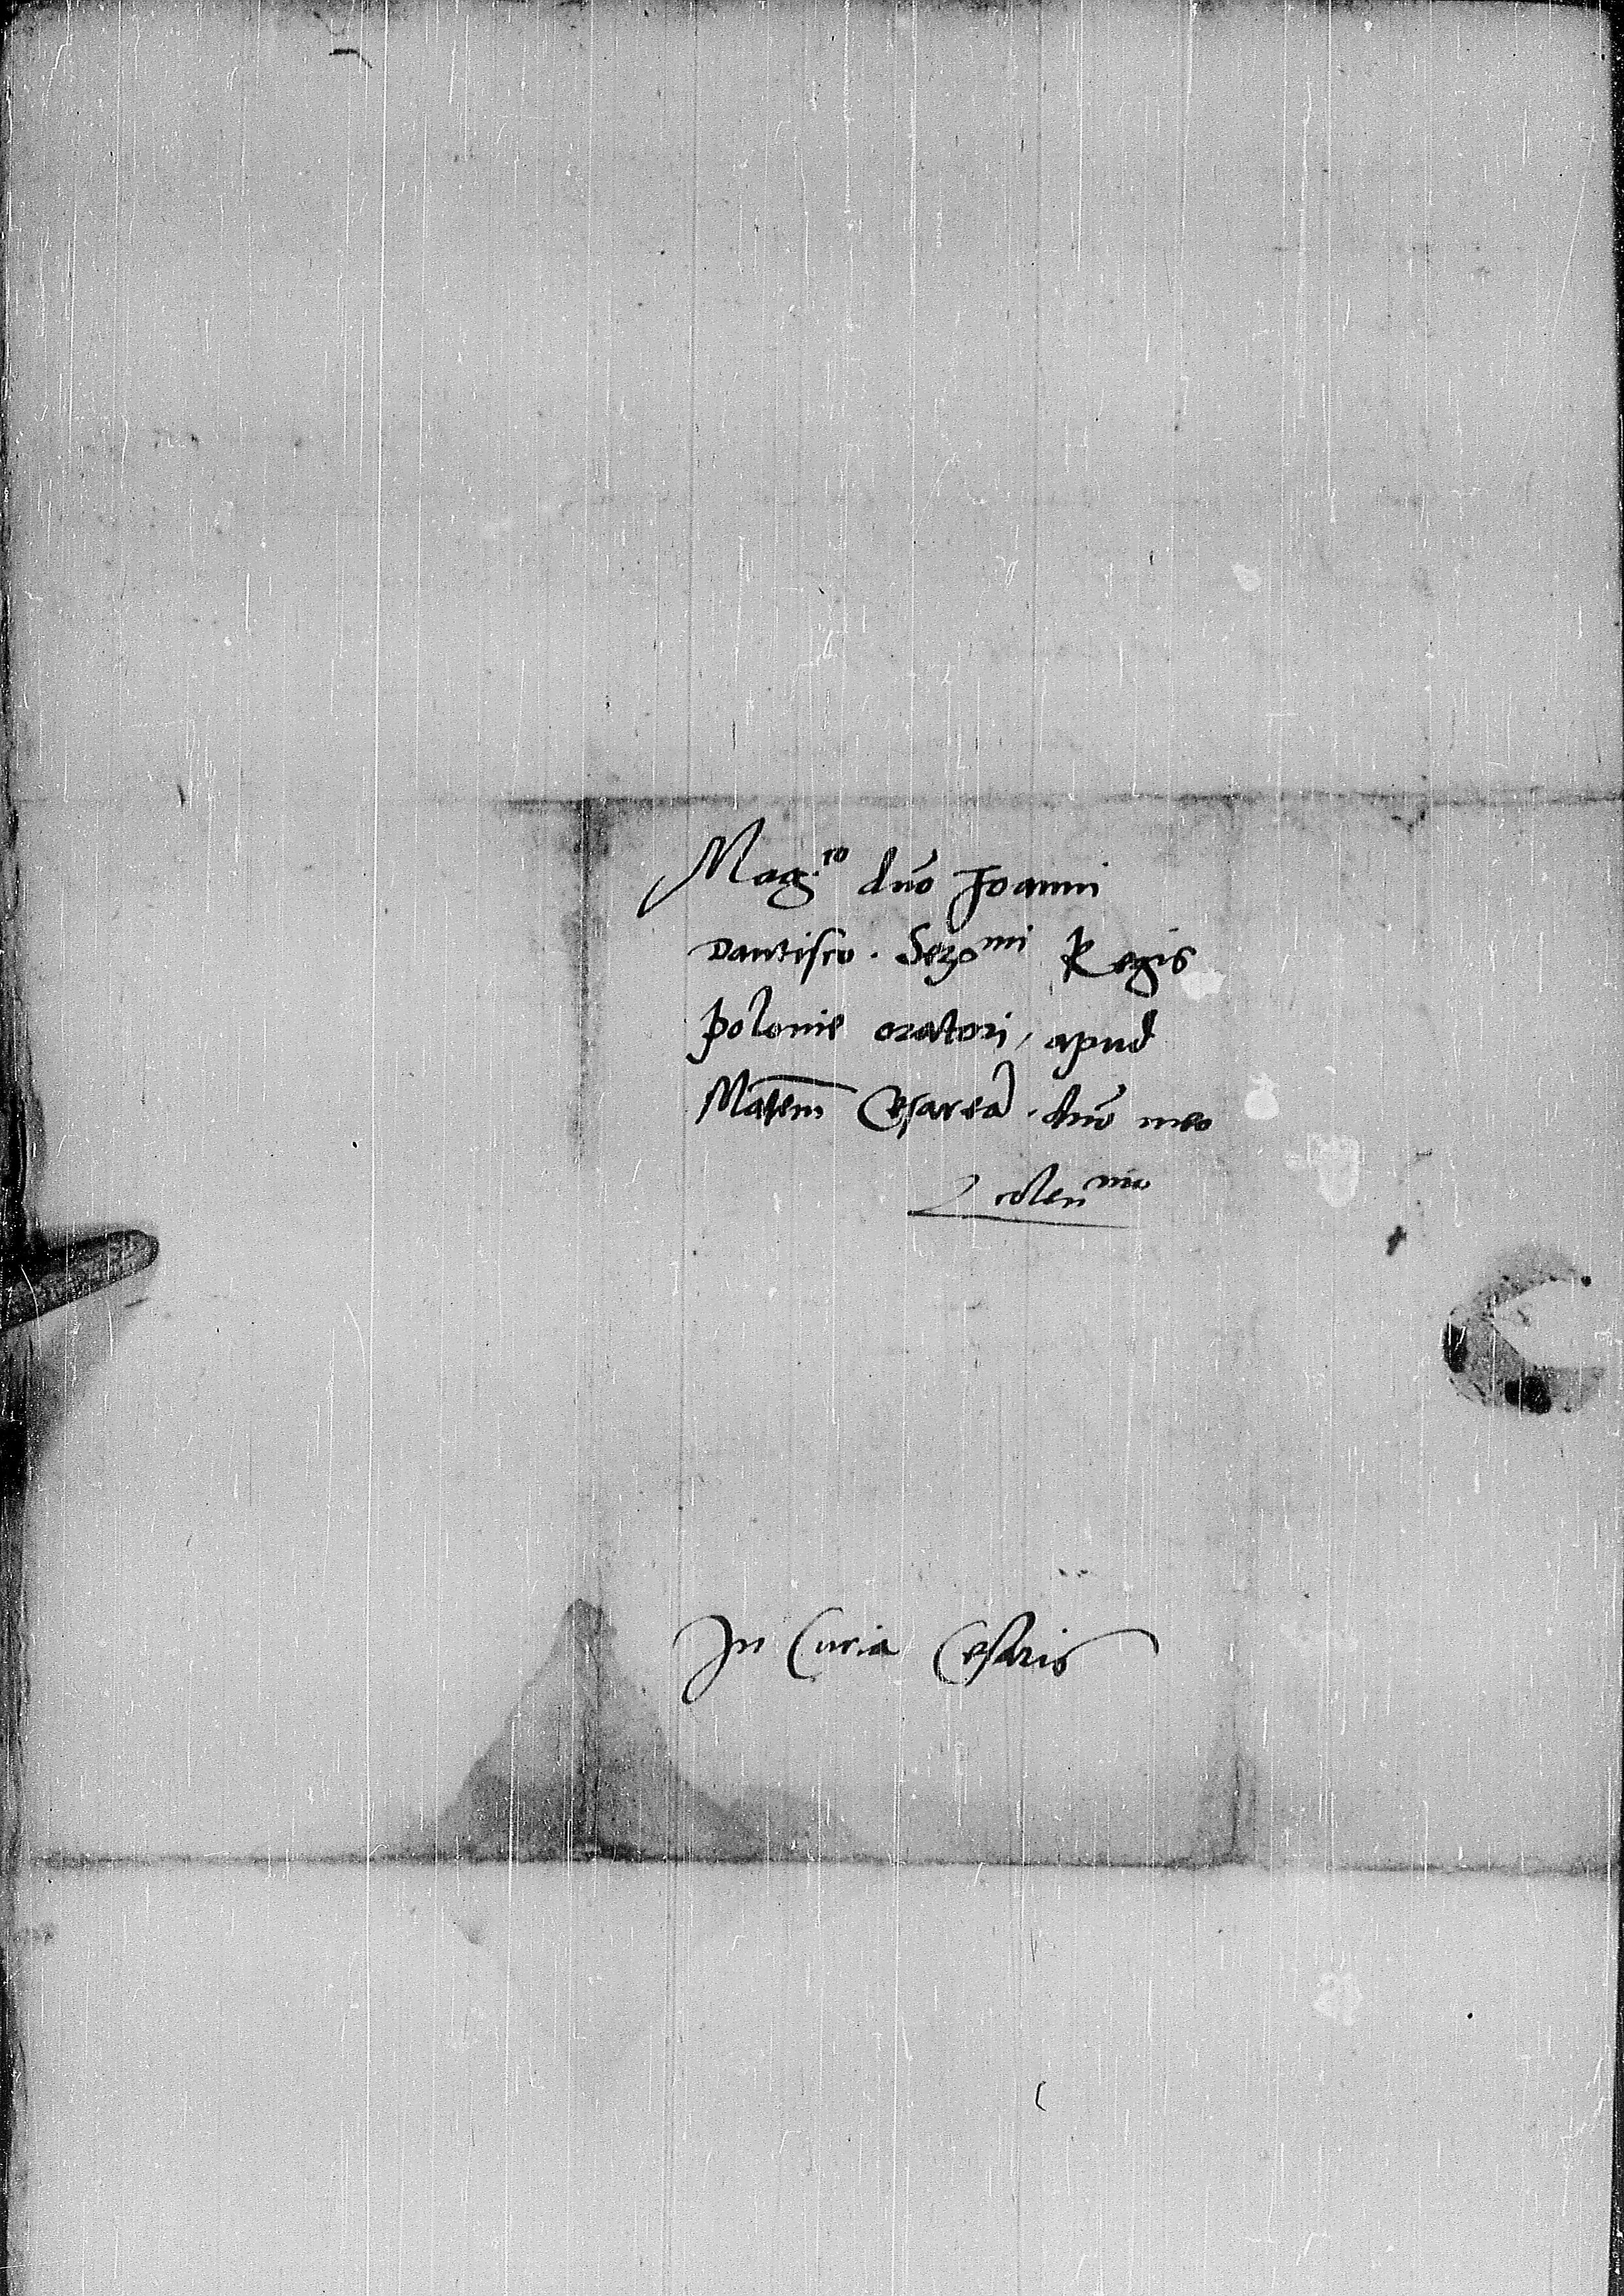 Mag.co dno Joanni
Dantisco. Sermi Regis
Polonie oratori, apud
Matem Cesarea. dno meo
Colenmo
In Curia Cesaris